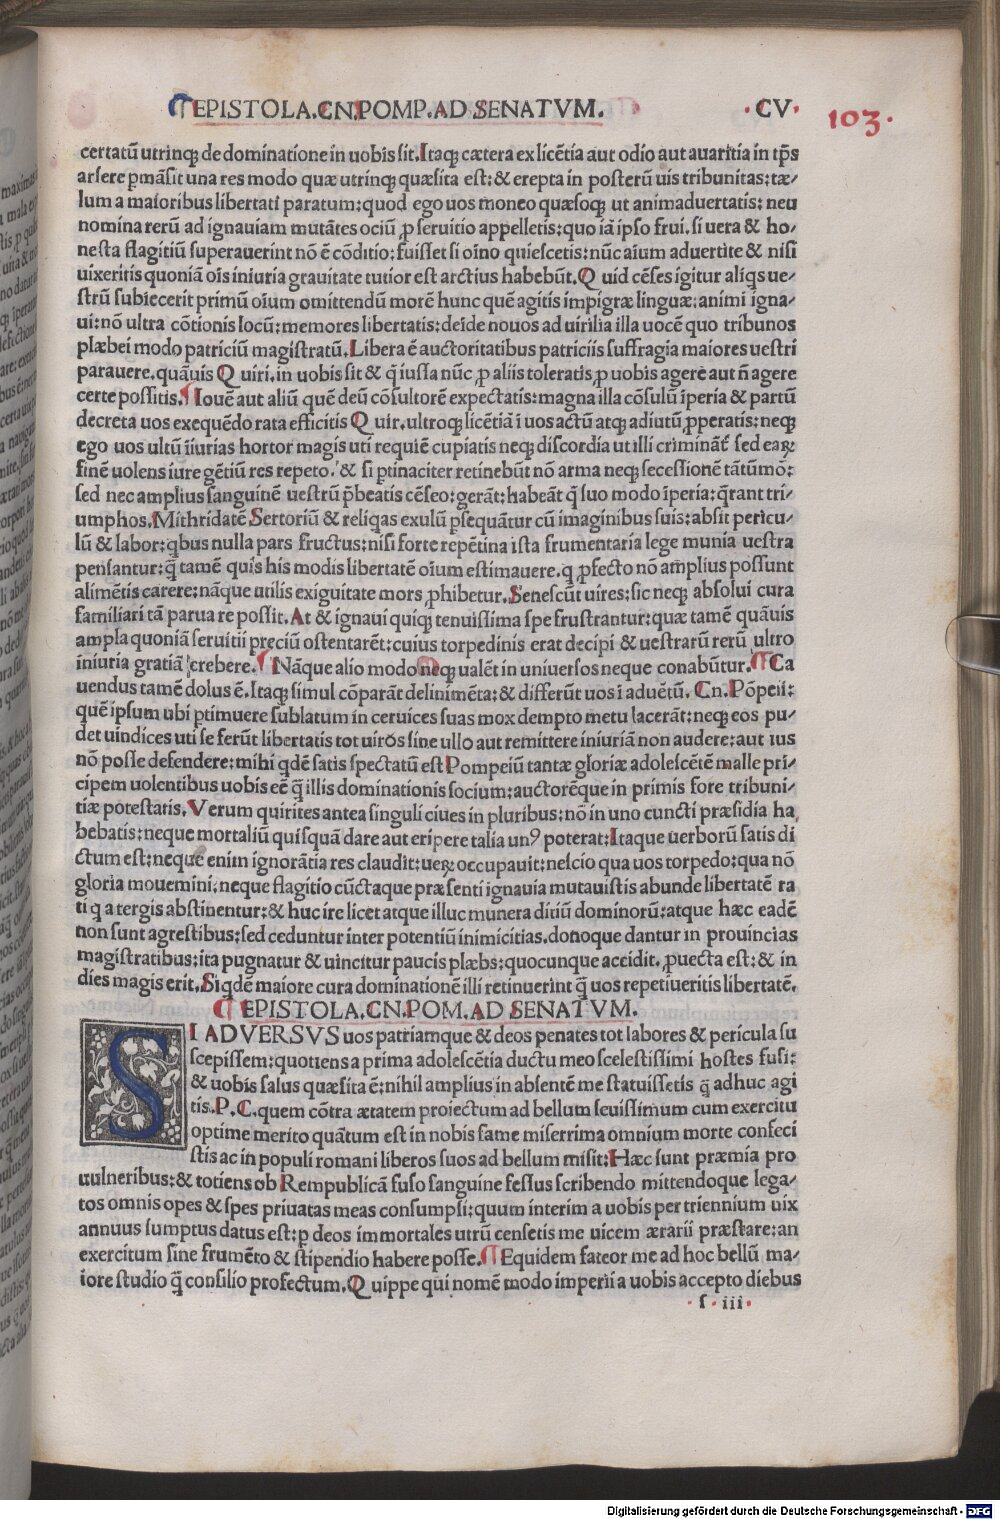 ¶EPISTOLA.CN.POMP.AD.SENATVM. ·CV· 103·
certatū utrinq; de dominatione in uobis sit. Itaq; cætera ex licētia aut odio aut auaritia in tp̄s
arsere p̱māsit una res modo quæ utrinq; quæsita est: & erepta in posterū uis tribunitas: tæ/
lum a maioribus libertati paratum: quod ego uos moneo quæsoq; ut animaduertatis: neu
nomina rerū ad ignauiam mutātes ociū ꝓ seruitio appelletis: quo iā ipso frui. si uera & ho/
nesta flagitiū superauerint nō ē cōditio: fuisset si oīno quiescetis: nūc aīum aduertite & nisi
uixeritis quoniā oīs iniuria grauitate tutior est arctius habebūt. Quid cēses igitur aliq̇s ue/
strū subiecerit primū oīum omittendū morē hunc quē agitis impigræ linguæ: animi igna/
ui: nō ultra cōtionis locū: memores libertatis: deīde nouos ad uirilia illa uocē quo tribunos
plæbei modo patriciū magistratū. Libera ē auctoritatibus patriciis suffragia maiores uestri
parauere. quāuis Quiri. in uobis sit & q̄ iussa nūc ꝓ aliis toleratis ꝓ uobis agere aut n̄ agere
certe possitis. ¶Iouē aut aliū quē deū cōsultorē expectatis: magna illa cōsulū īperia & partū
decreta uos exequēdo rata efficitis Quir. ultroq; licētiā ī uos actū atq; adiutū ꝓperatis: neq;
ego uos ultū īiurias hortor magis uti requiē cupiatis neq; discordia ut illi crimināt̄ sed eaꝝ
finē uolens iure gētiū res repeto. & si ptinaciter retinebūt nō arma neq; secessionē tātūmō:
sed nec amplius sanguinē uestrū p̄beatis cēseo: gerāt: habeāt q̄ suo modo īperia: q̄rant tri/
umphos. Mithridatē Sertoriū & reliq̇as exulū ꝑsequātur cū imaginibus suis: absit pericu/
lū & labor: q̇bus nulla pars fructus: nisi forte repētina ista frumentaria lege munia uestra
pensantur: q̄ tamē quis his modis libertatē oīum estimauere. q ꝓfecto nō amplius possunt
alimētis carere: nāque utilis exiguitate mors ꝓhibetur. Senescūt uires: sic neq; absolui cura
familiari tā parua re possit. At & ignaui quiq; tenuissima spe frustrantur: quæ tamē quāuis
ampla quoniā seruitii preciū ostentarēt: cuius torpedinis erat decipi & uestrarū rerū ultro
iniuria gratiā crebere. ¶Nāque alio modo neq; ualēt in uniuersos neque conabūtur. ¶Ca
uendus tamē dolus ē. Itaq; simul cōparāt delinimēta: & differūt uos ī aduētū. Cn. Pōpeii:
quē ipsum ubi ptimuere sublatum in ceruices suas mox dempto metu lacerāt: neq; eos pu/
det uindices uti se ferūt libertatis tot uiros sine ullo aut remittere iniuriā non audere: aut ius
nō posse defendere: mihi q̇dē satis spectatū est Pompeiū tantæ gloriæ adolescētē malle pri/
cipem uolentibus uobis eē q̄ illis dominationis socium: auctorēque in primis fore tribuni/
tiæ potestatis. Verum quirites antea singuli ciues in pluribus: nō in uno cuncti præsidia ha
bebatis: neque mortaliū quisquā dare aut eripere talia unꝰ poterat: Itaque uerborū satis di
ctum est: neque enim ignorātia res claudit: ueꝝ occupauit: nescio qua uos torpedo: qua nō
gloria mouemini: neque flagitio cūctaque præsenti ignauia mutauistis abunde libertatē ra
ti q a tergis abstinentur: & huc ire licet atque illuc munera ditiū dominorū: atque hæc eadē
non sunt agrestibus: sed ceduntur inter potentiū inimicitias. donoque dantur in prouincias
magistratibus: ita pugnatur & uincitur paucis plæbs: quocunque accidit. ꝓuecta est: & in
dies magis erit. Siq̇dē maiore cura dominationē illi retinuerint q̄ uos repetiueritis libertatē.
¶EPISTOLA.CN.POM.AD SENATVM.
SI ADVERSVS uos patriamque & deos penates tot labores & pericula su
scepissem: quotiens a prima adolescētia ductu meo scelestissimi hostes fusi:
& uobis salus quæsita ē: nihil amplius in absentē me statuissetis q̄ adhuc agi
tis. P. C. quem cōtra ætatem proiectum ad bellum seuissimum cum exercitu
optime merito quātum est in nobis fame miserrima omnium morte confeci
stis ac in populi romani liberos suos ad bellum misit: Hæc sunt præmia pro
uulneribus: & totiens ob Rempublicā fuso sanguine fessus scribendo mittendoque lega/
tos omnis opes & spes priuatas meas consumpsi: quum interim a uobis per triennium uix
annuus sumptus datus est: p̱ deos immortales utrū censetis me uicem ærarii præstare: an
exercitum sine frumēto & stipendio habere posse. ¶Equidem fateor me ad hoc bellū ma/
iore studio q̄ consilio profectum. Quippe qui nomē modo imperii a uobis accepto diebus
·s· iii·
Digitalisierung gefördert durch die Deutsche Forschungsgemeinschaft - DFG